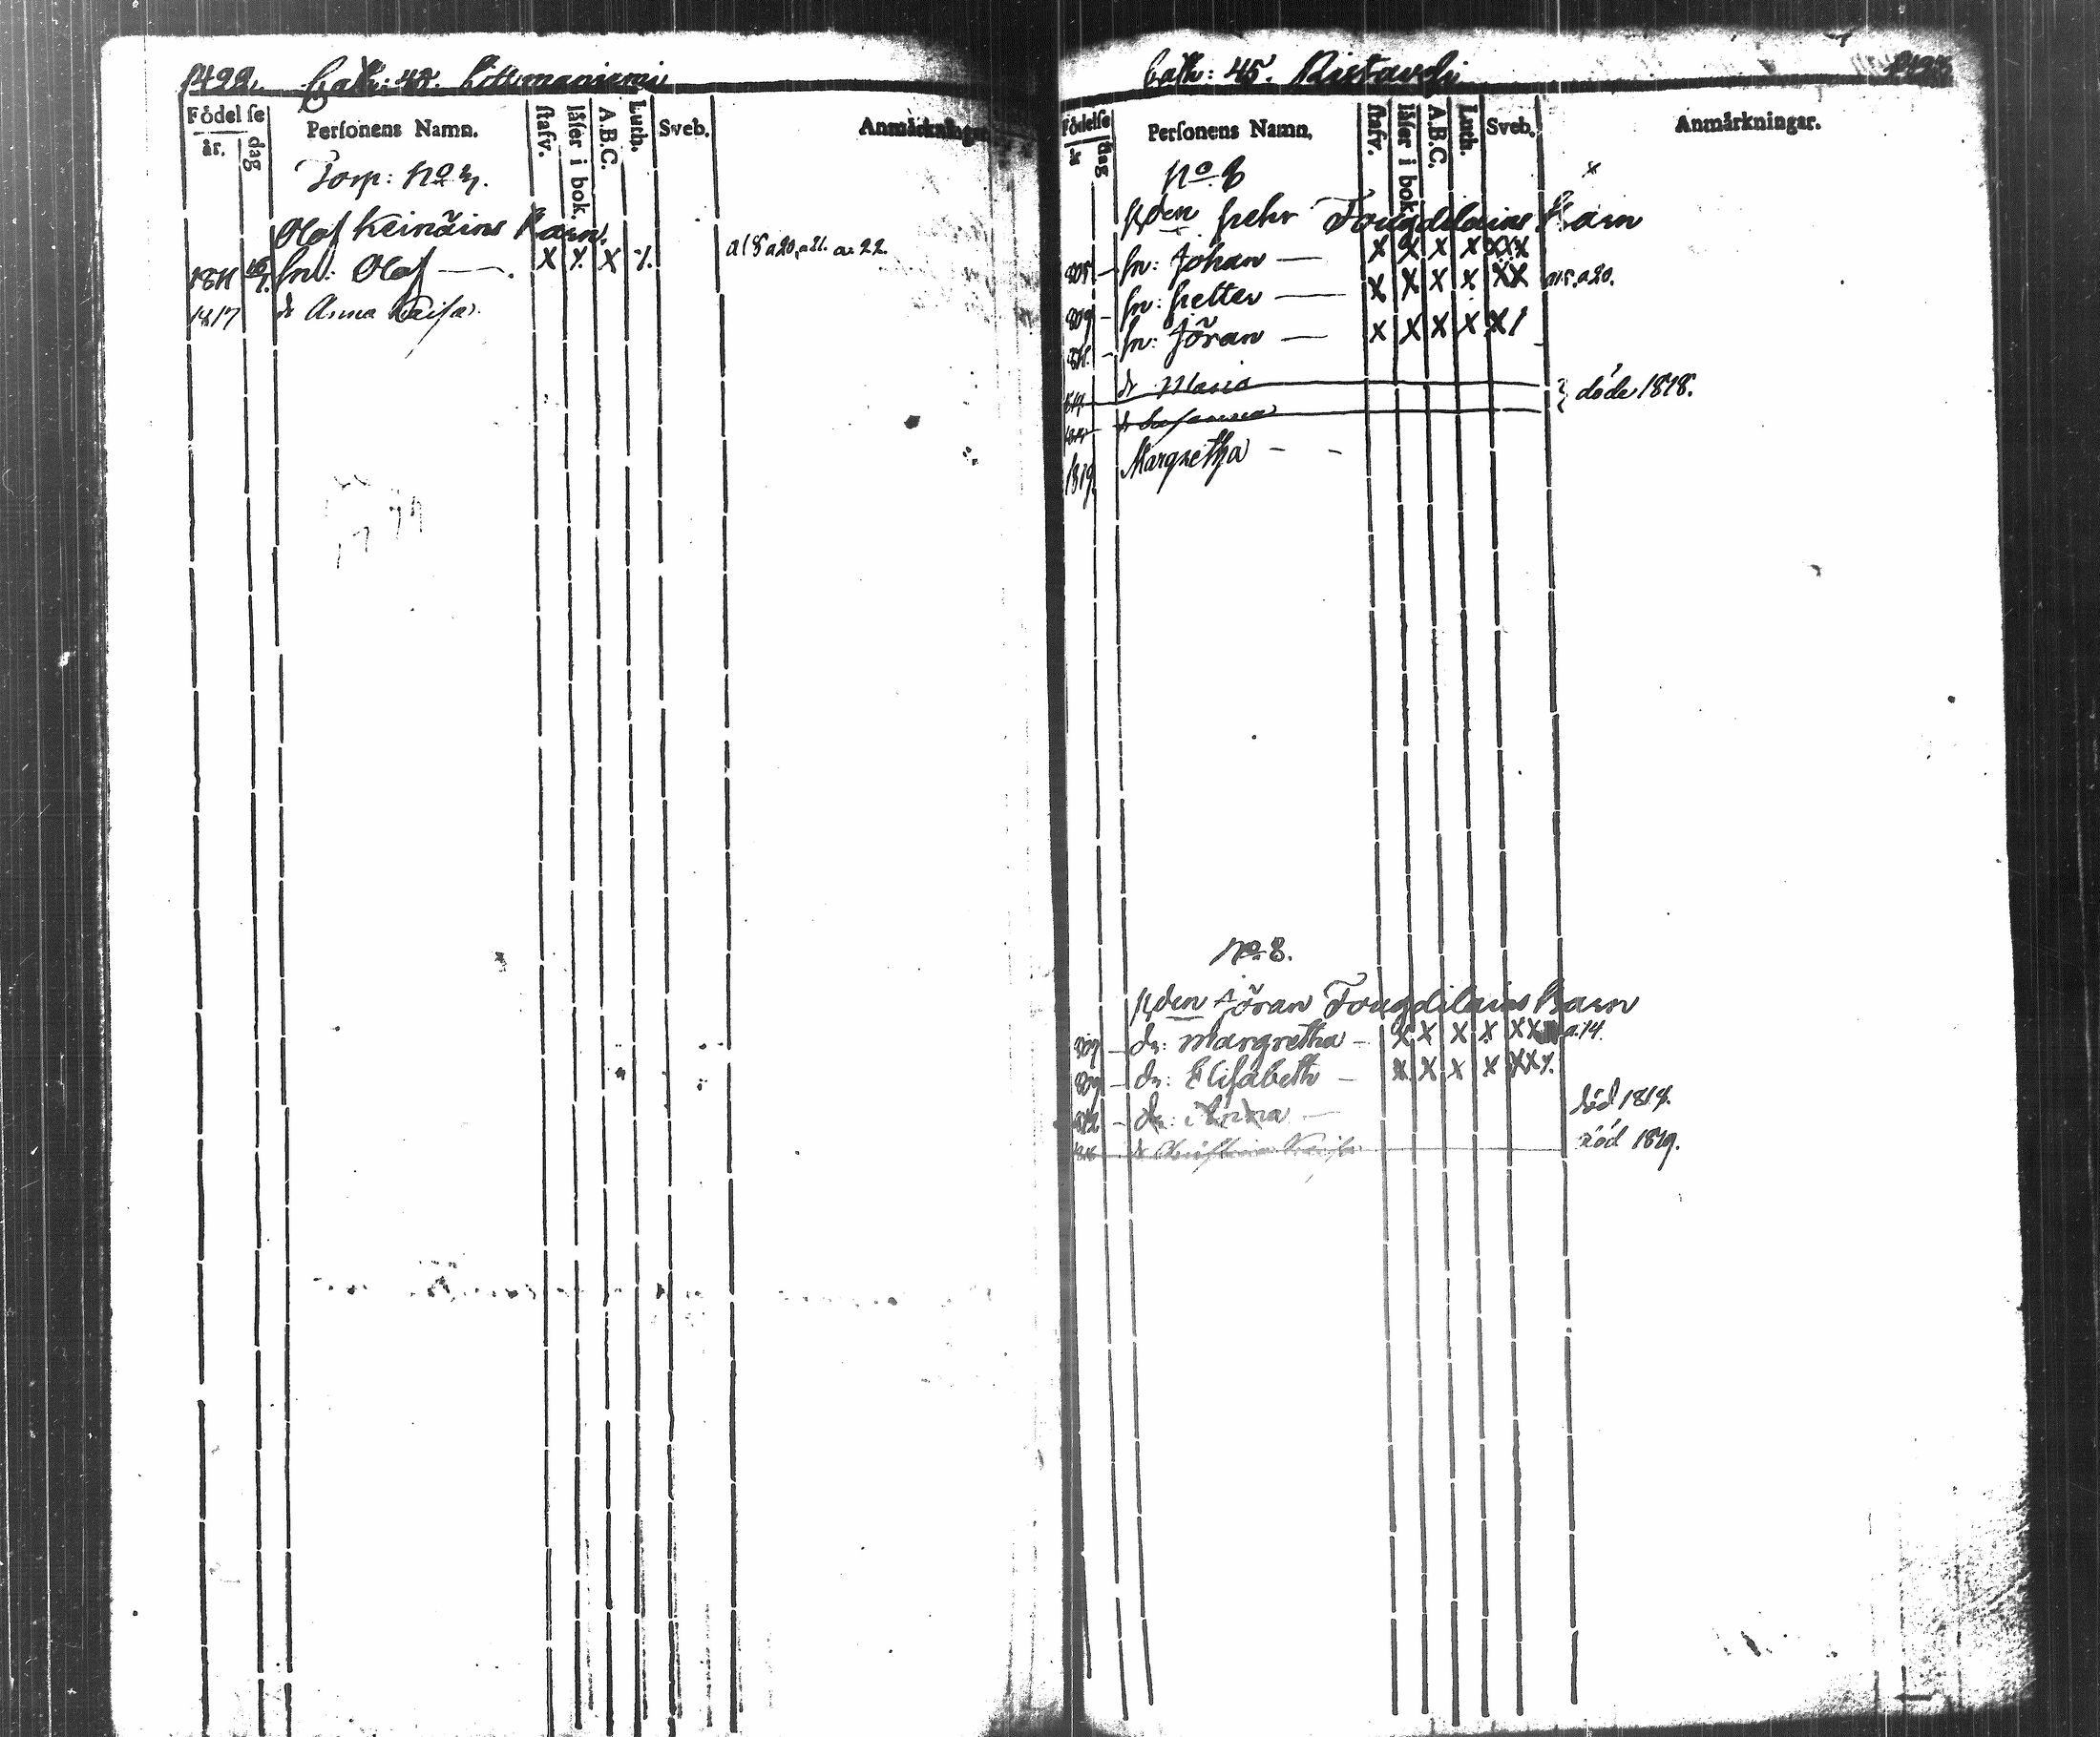 1422. Cath: 42. Littmaniemi
Födelſe
år. dag Perſonens Namn. ſtafv. läſer i bok. A.B.C. Luth. Sveb. Anmärkningar
Torp: No 3.
Olof Keinäins Barn.
1811 Sn: Olof — X X X X a18 a20, a21. a: 22.
1817 dr Anna Caisa
Cath: 45. Ristavesi
Födelſe
år dag Perſonens Namn. ſtafv. läſer i bok. A.B.C. Luth. Sveb. Anmärkningar.
No 6
Bden Pehr Tougdilains Barn
805 – Sn: Johan — X X X X XXX
809 – Sn: Petter — X X X X XX a20.
Sn: Jöran — X X X X X/
dr Maria
dr Susanna } döde 1818.
1819 Margretha - -
No 8.
Bden Jöran Tougdilains Barn
807 – dr: Margretha – X X X X XX a.14.
809 – dr: Elisabeth – X X X X XXX
812 – dr: Anna — död 1818.
1816 dr Christina Caisa död 1819.